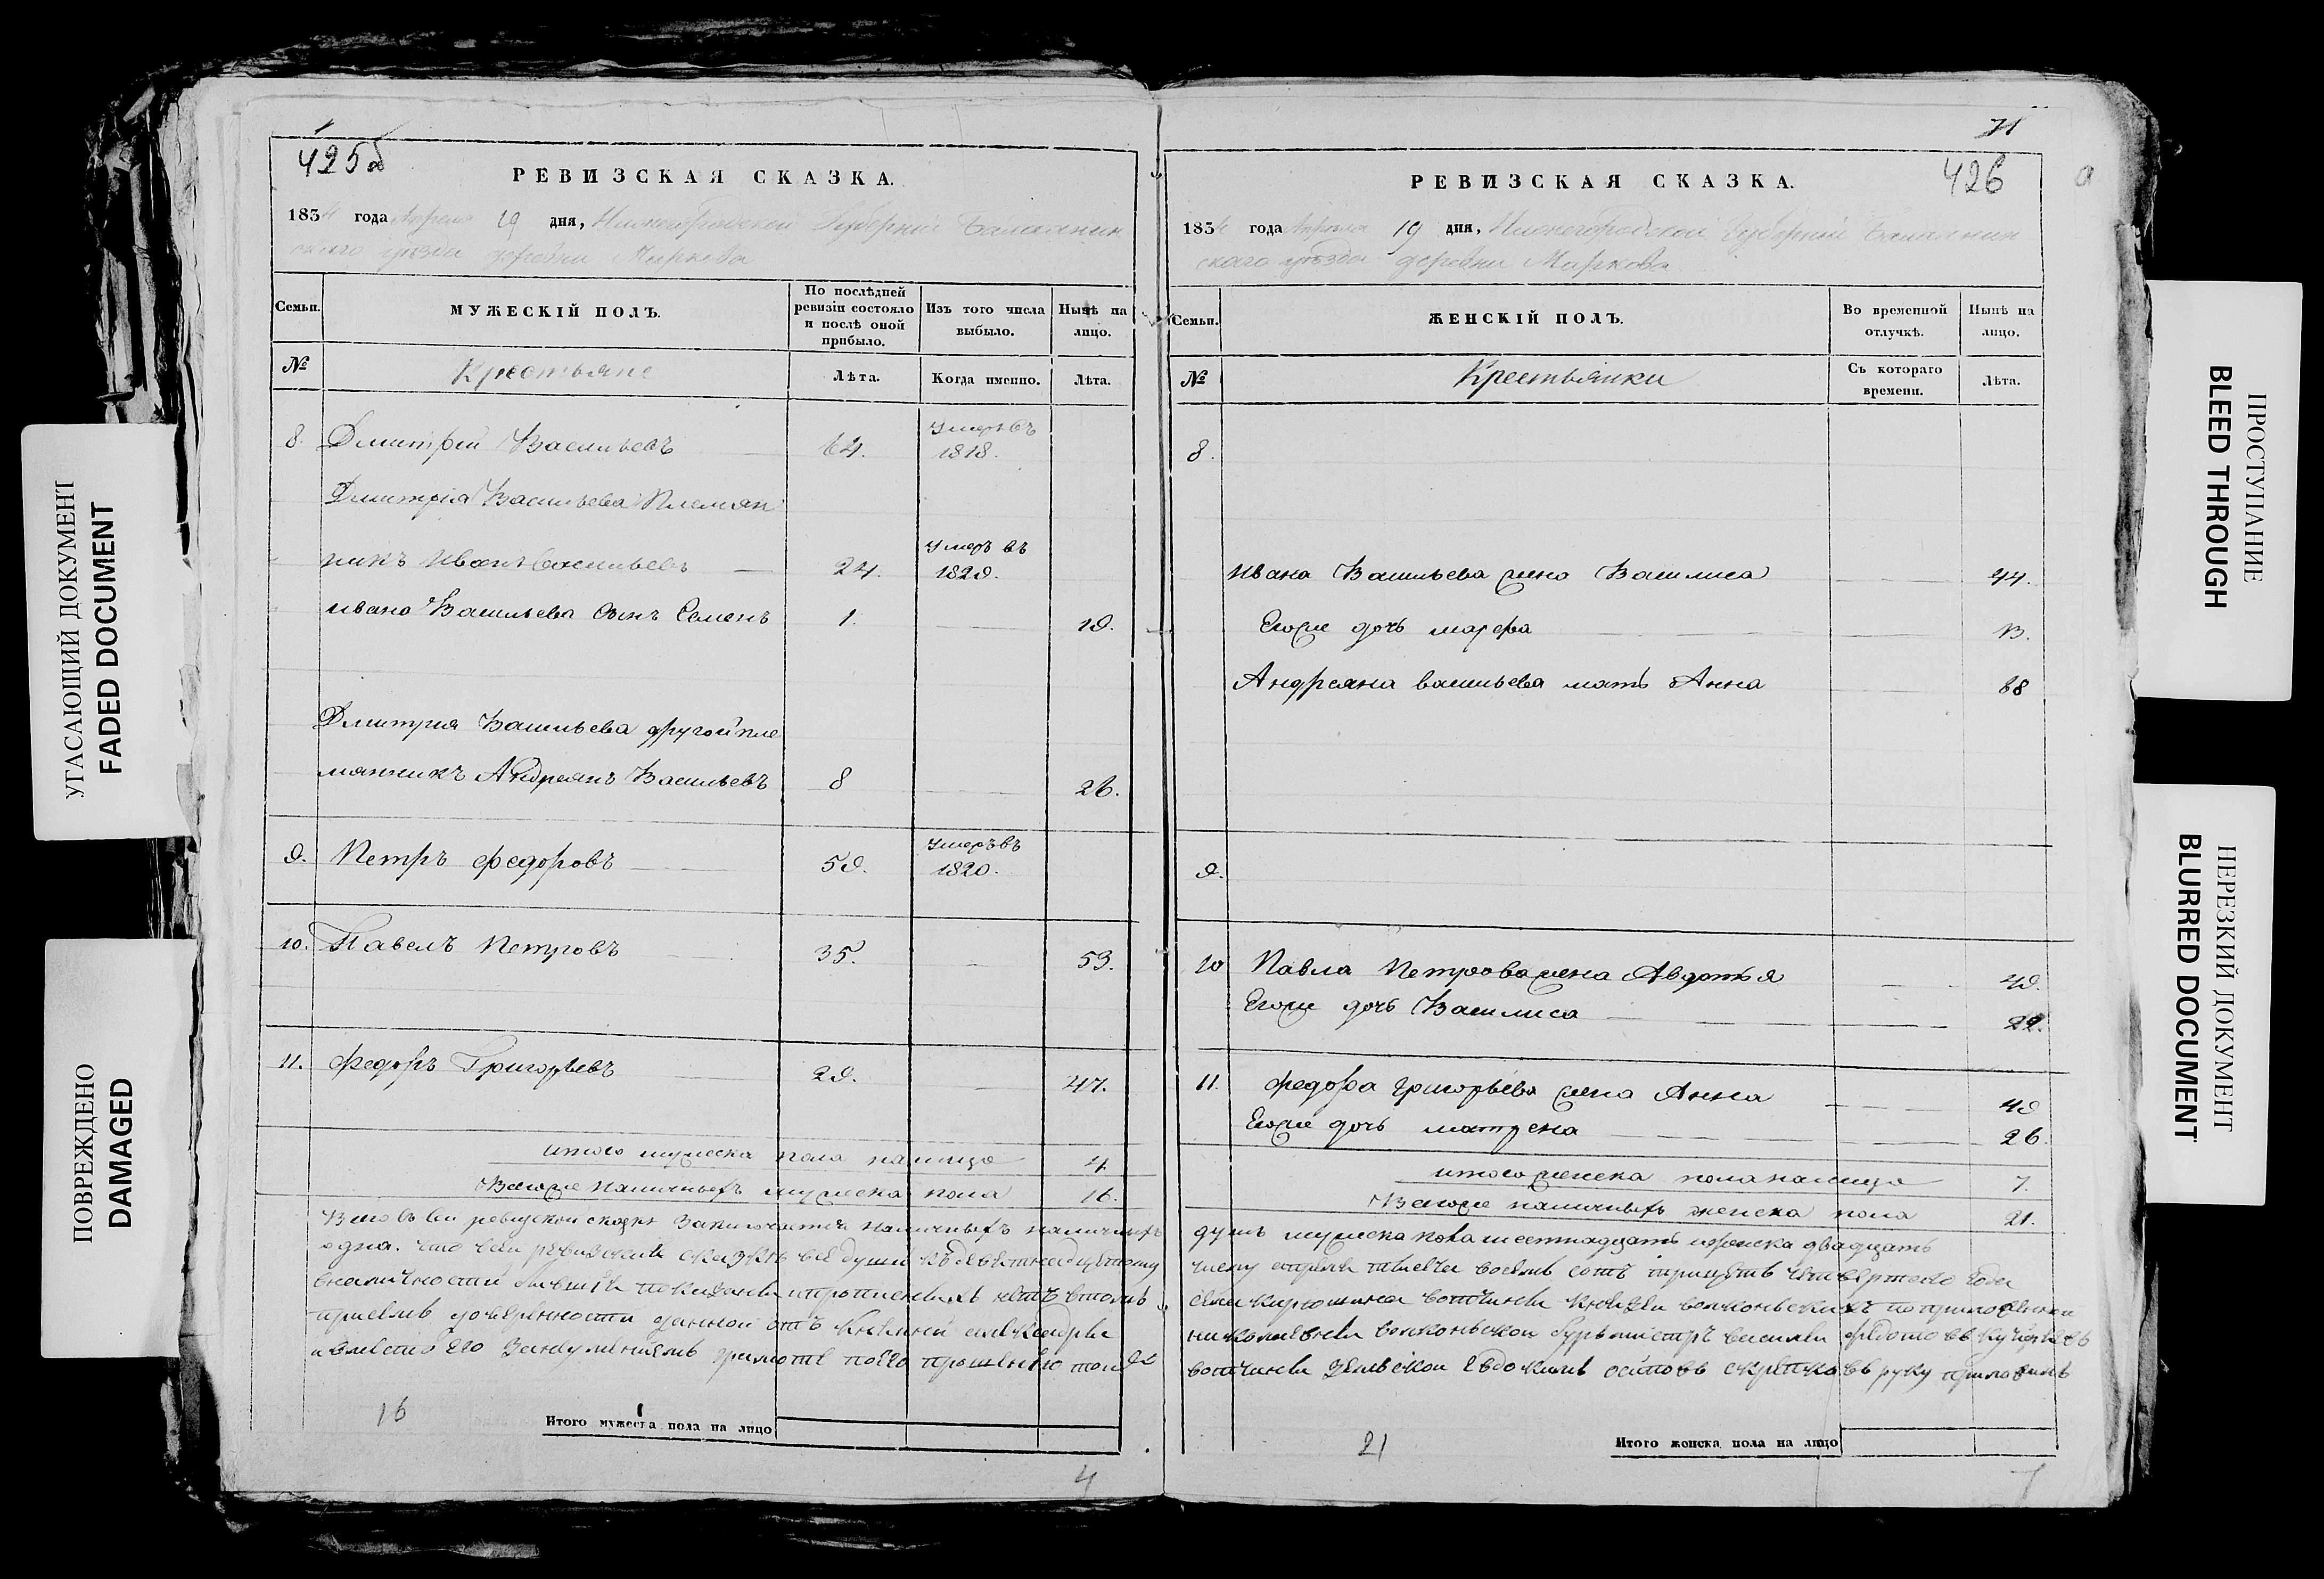 425б
РЕВИЗСКАЯ СКАЗКА.
1834 года Апреля 19 дня, Нижегородской Губернии Балахнин
скаго уѣзда деревни Маркова
Семьи.
МУЖЕСКІЙ ПОЛЪ.
По послѣдней
ревизіи состояло
и послѣ оной
прибыло.
Изъ того числа
выбыло.
Нынѣ на
лицо.
№
Крестьяне
Лѣта.
Когда именно.
Лѣта.
8. Дмитрей Васильевъ 64. Умеръ въ 1818.
Дмитрія Васильева Племян
никъ Иванъ Васильевъ 24. Умеръ въ 1829.
Ивана Васильева сынъ Семенъ 1. 19.
Дмитрия Васильева другой пле
мянникъ Андреянъ Васильевъ 8 26.
9. Петръ Федоровъ 59. Умеръ въ 1820.
10. Павелъ Петровъ 35. 53.
11. Федоръ Григорьевъ 29. 47.
итого мужеска пола налицо 4
Всего же наличныхъ мужеска пола 16.
Всего въ сей ревизской сказке Заключается наличныхъ
одна. что сей ревизской сказке все души къ девятнадцатому
16
Итого мужеска пола на лицо
4
71
426
а
РЕВИЗСКАЯ СКАЗКА.
1834 года Апреля 19 дня, Нижегородской Губерній Балахнин
скаго уѣзда деревни Маркова
Семьи.
ЖЕНСКІЙ ПОЛЪ.
Во временной
отлучкѣ.
Нынѣ на
лицо.
№
Крестьянки
Съ котораго
времени.
Лѣта.
8.
Ивана Васильева жена Василиса 44.
Егоже дочь марфа 13.
Андреяна васильева мать Анна 68
9.
10 Павла Петрова жена Авдотья 49.
Егоже дочь Василиса
11. Федора григорьева жена Анна 49
Егоже дочь матрена 26.
итого женска пола налицо 7.
Всегоже наличныхъ женска пола 21.
душъ мужеска пола шестнадцать женска двадцать
числу апреля тысеча восемь сотъ тритцать четвертого года
21
Итого женска пола на лицо
7
УГАСАЮЩИЙ ДОКУМЕНТ
FADED DOCUMENT
ПОВРЕЖДЕНО
DAMAGED
ПРОСТУПАНИЕ
BLEED THROUGH
НЕРЕЗКИЙ ДОКУМЕНТ
BLURRED DOCUMENT